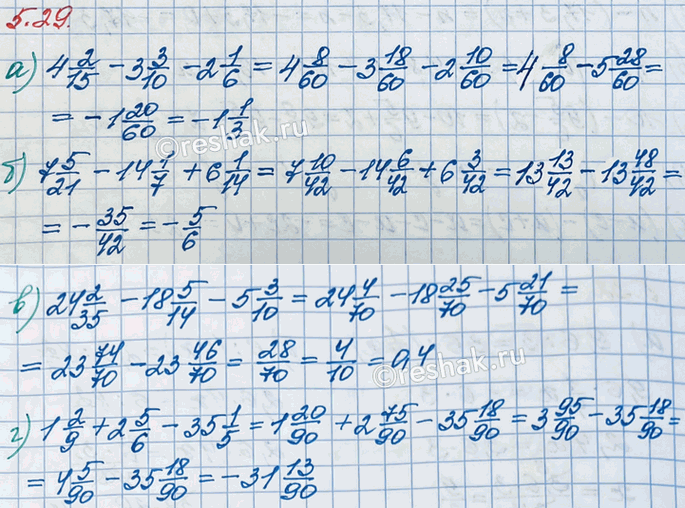 5.29.
а) 4 2/15 − 3 3/10 − 2 1/6 = 4 8/60 − 3 18/60 − 2 10/60 = 4 8/60 − 5 28/60 =
= − 1 20/60 = − 1 1/3
б) 7 5/21 − 14 1/7 + 6 1/14 = 7 10/42 − 14 6/42 + 6 3/42 = 13 13/42 − 13 48/42 =
= − 35/42 = − 5/6
в) 24 2/35 − 18 5/14 − 5 3/10 = 24 4/70 − 18 25/70 − 5 21/70 =
= 23 74/70 − 23 46/70 = 28/70 = 4/10 = 0,4
г) 1 2/9 + 2 5/6 − 35 1/5 = 1 20/90 + 2 75/90 − 35 18/90 = 3 95/90 − 35 18/90 =
= 4 5/90 − 35 18/90 = − 31 13/90
©reshak.ru
©reshak.ru